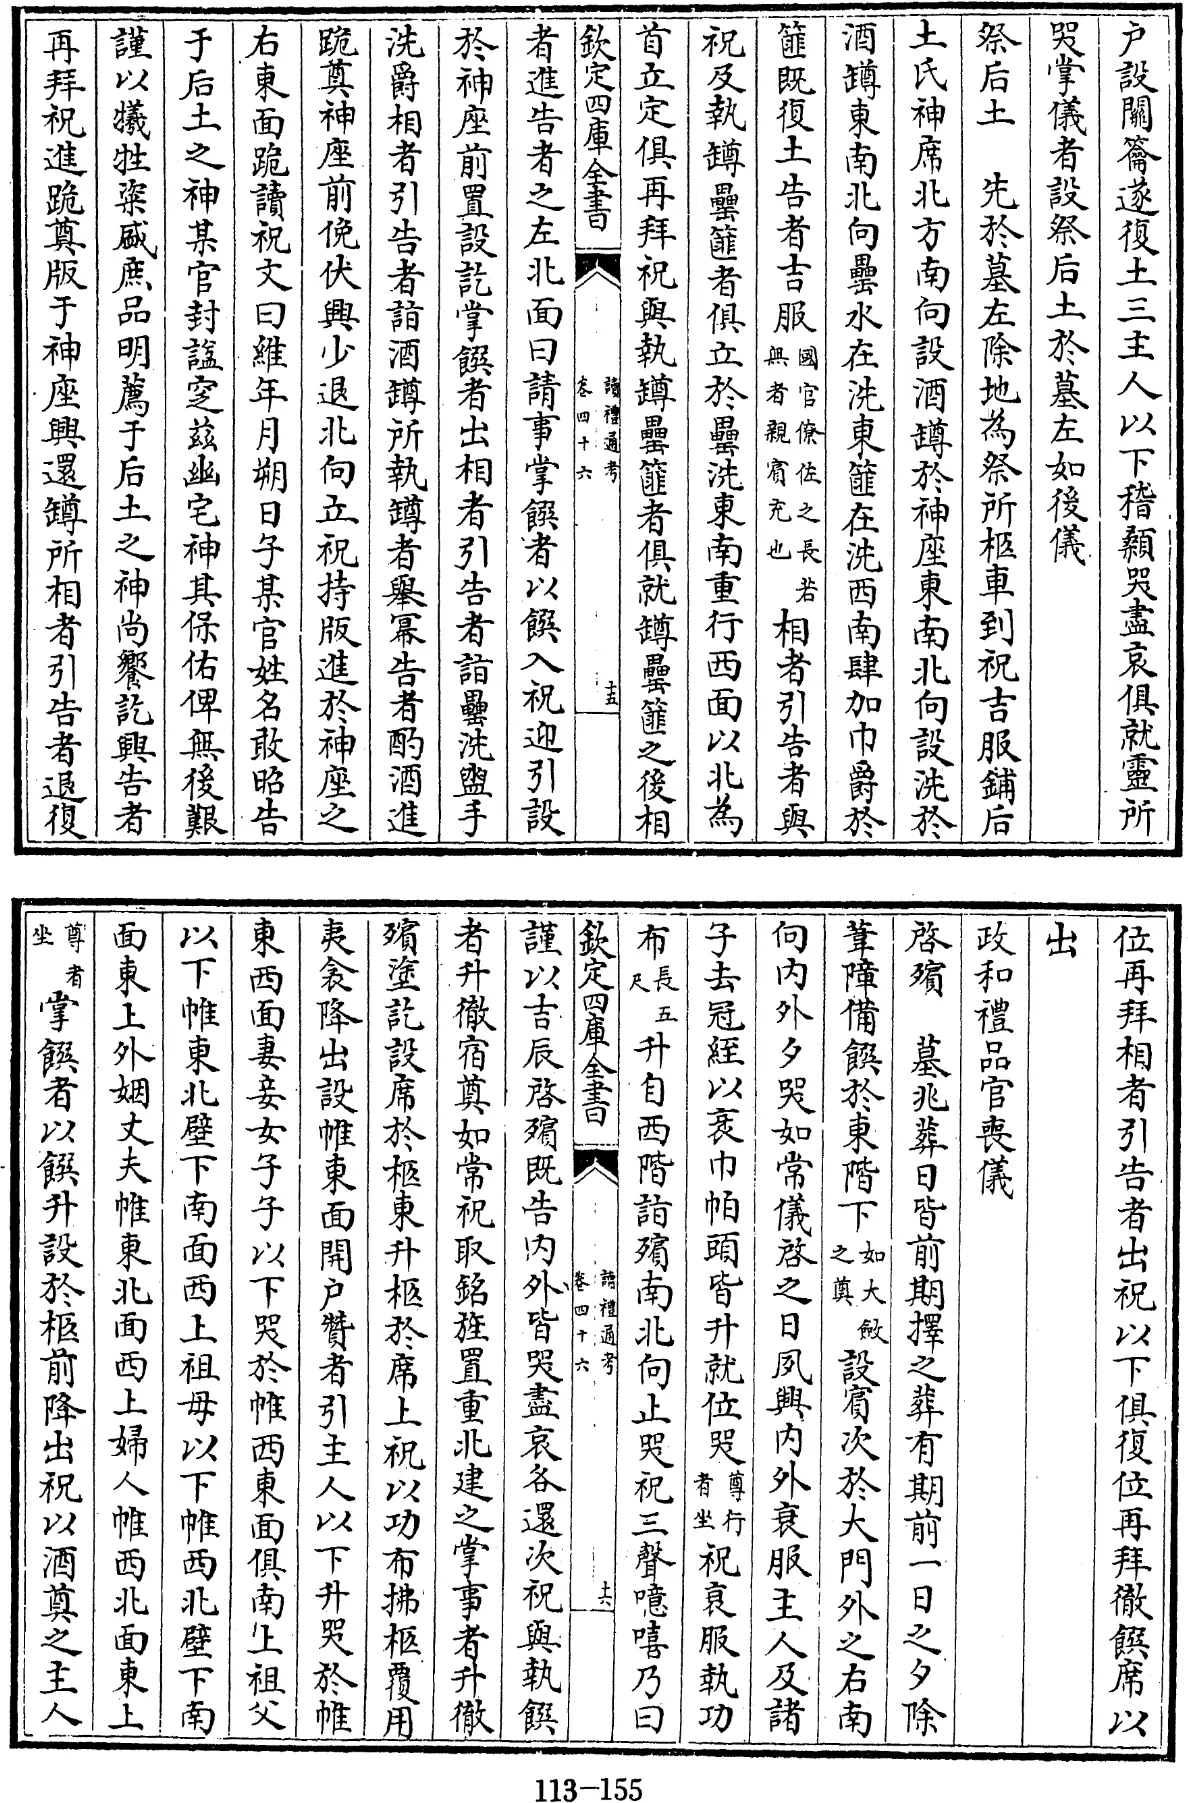 户設關籥遂復土三主人以下稽顙哭盡哀俱就靈所
哭掌儀者設祭后土於墓左如後儀
祭后土　先於墓左除地為祭所柩車到祝吉服鋪后
土氏神席北方南向設酒罇於神座東南北向設洗於
酒罇東南北向罍水在洗東篚在洗西南肆加巾爵於
篚既復土告者吉服國官僚佐之長若無者親賓充也相者引告者與
祝及執罇罍篚者俱立於罍洗東南重行西面以北為
首立定俱再拜祝與執罇罍篚者俱就罇罍篚之後相
欽定四庫全書　讀禮通考卷四十六　十五
者進告者之左北面曰請事掌饌者以饌入祝迎引設
於神座前置設訖掌饌者出相者引告者詣罍洗盥手
洗爵相者引告者詣酒罇所執罇者舉冪告者酌酒進
跪奠神座前俛伏興少退北向立祝持版進於神座之
右東面跪讀祝文曰維年月朔日子某官姓名敢昭告
于后土之神某官封諡窆茲幽宅神其保佑俾無後艱
謹以犧牲粢盛庶品明薦于后土之神尚饗訖興告者
再拜祝進跪奠版于神座興還罇所相者引告者退復
位再拜相者引告者出祝以下俱復位再拜徹饌席以
出
政和禮品官喪儀
啓殯　墓兆葬日皆前期擇之葬有期前一日之夕除
葦障備饌於東階下如大斂之奠設賓次於大門外之右南
向内外夕哭如常儀啓之日夙興内外衰服主人及諸
子去冠絰以衰巾帕頭皆升就位哭尊行者坐祝衰服執功
布長五尺升自西階詣殯南北向止哭祝三聲噫嘻乃曰
欽定四庫全書　讀禮通考卷四十六　十六
謹以吉辰啓殯既告内外皆哭盡哀各還次祝與執饌
者升徹宿奠如常祝取銘旌置重北建之掌事者升徹
殯塗訖設席於柩東升柩於席上祝以功布拂柩覆用
夷衾降出設帷東面開户贊者引主人以下升哭於帷
東西面妻妾女子子以下哭於帷西東面俱南上祖父
以下帷東北壁下南面西上祖母以下帷西北壁下南
面東上外姻丈夫帷東北面西上婦人帷西北面東上
尊者坐掌饌者以饌升設於柩前降出祝以酒奠之主人
113-155